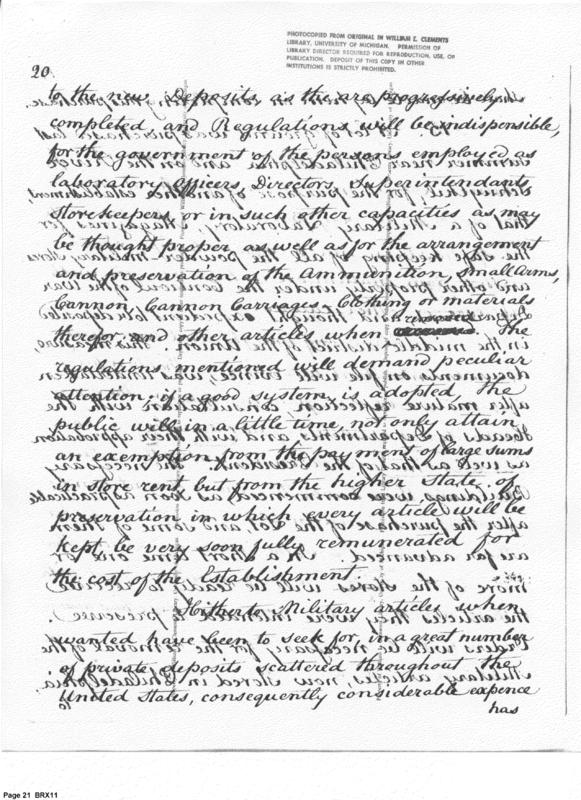 PHOTOCOPIED FROM ORIGINAL IN WILLIAM L. CLEMENTS
LIBRARY, UNIVERSITY OF MICHIGAN. PERMISSION OF
LIBRARY DIRECTOR REQUIRED FOR REPRODUCTION, USE, OR
PUBLICATION. DEPOSIT OF THIS COPY IN OTHER
INSTITUTIONS IS STRICTLY PROHIBITED.
20
to the new Deposits as the are progressively
completed and Regulations will be indispensible,
for the government of the persons employed as
laboratory Officers, Directors, Superintendants,
Storekeepers, or in such other capacities as may
be thought proper as well as for the arrangement
and preservation of the Ammunition, Small Arms,
Cannon, Cannon Carriages, Clothing or materials
therefor, and other articles when removed The
regulations mentioned will demand peculiar
attention; if a good system is adopted, the
public will in a little time, not only attain
an exemption from the payment of large sums
in store rent, but from the higher state of
preservation in which every article will be
kept, be very soon fully remunerated for
the cost of the Establishment.
Hitherto Military articles when
wanted have been to seek for, in a great number
of private deposits scattered throughout the
United States, consequently considerable expence
has
Page 21 BRX11